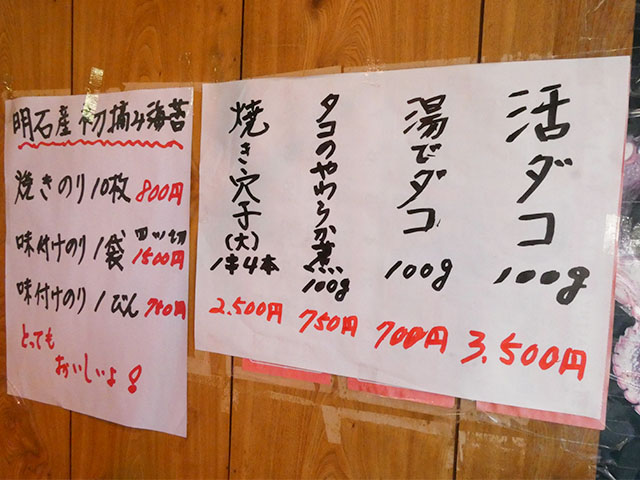 明石産初摘み海苔
焼きのり10枚 800円
味付けのり1袋 四ツ切 1500円
味付けのり1びん 750円
とっても
おいしいよ!
活ダコ 100g 3,500円
湯でダコ 100g 700円
タコのやわらか煮 100g 750円
焼き穴子(大) 1串4本 2,500円